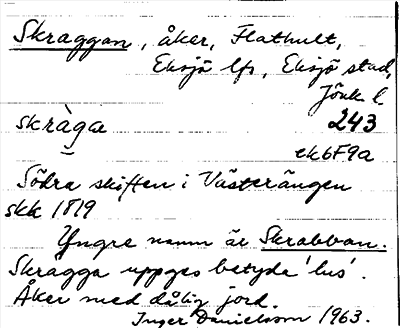 Skraggan, åker, Flathult,
Eksjö lfs, Eksjö stad,
Jönk l
skràga 243
ek6F9a
Södra skiften i Västerängen
skk 1819
Yngre namn är Skrabban.
Skragga uppges betyda 'lus'.
Åker med dålig jord.
Inger Danielsson 1963.